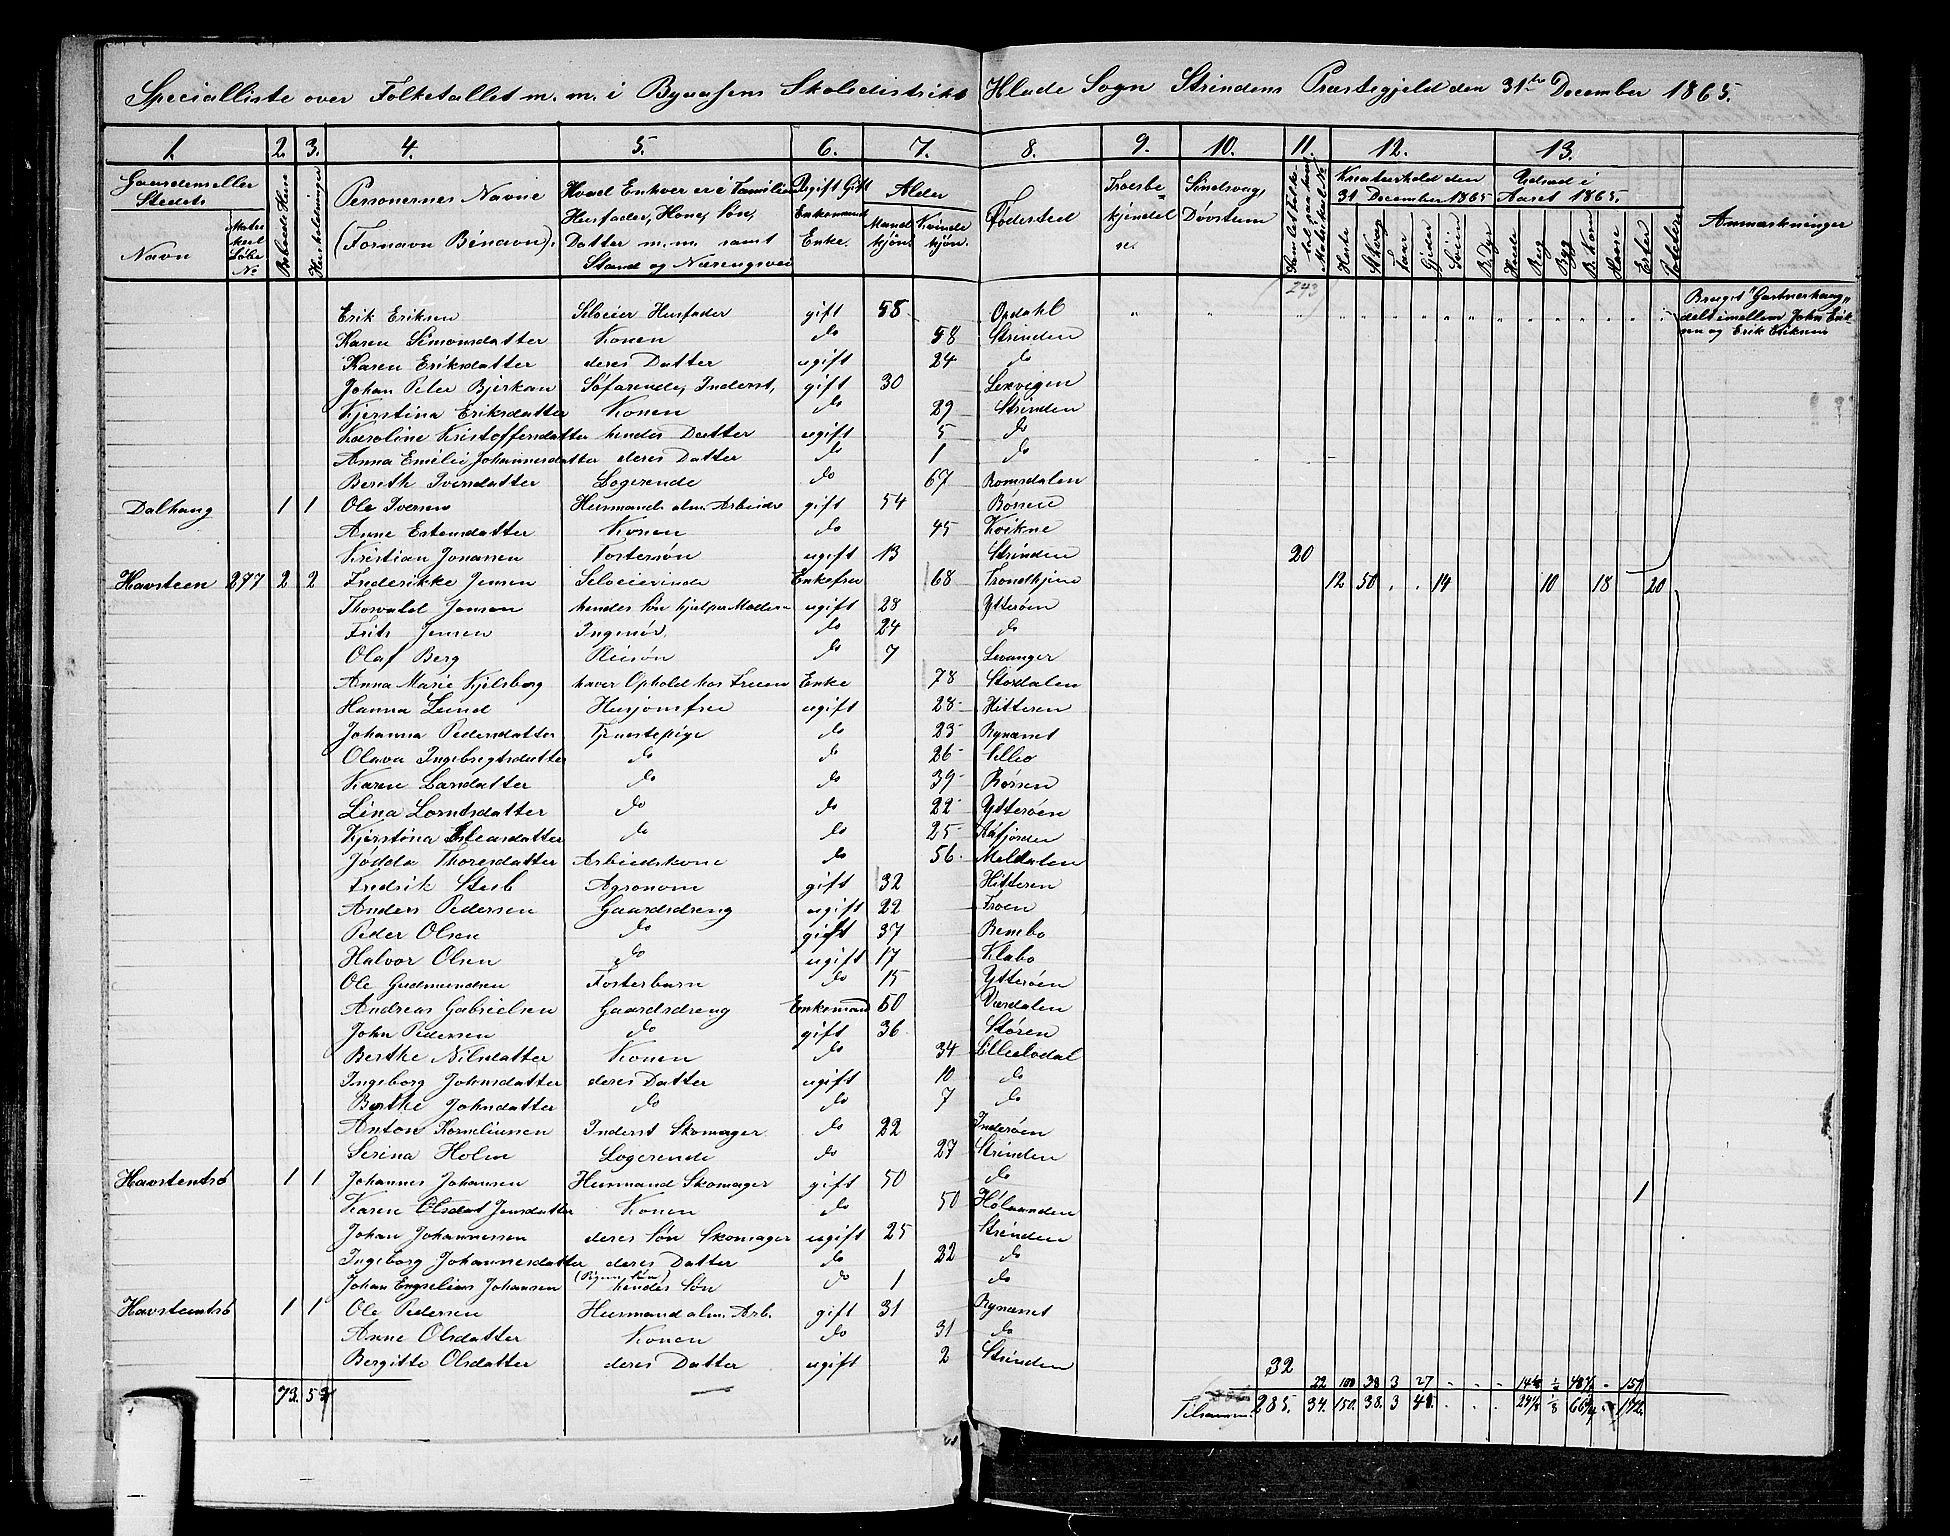 Specialliste over Folketallet m. m. i Byaasens Skoledistrikt Hlade Sogn Strindens Præstegjeld den 31te December 1865.
1. 2. 3. 4. 5. 6. 7. 8. 9. 10. 11. 12. 13.
Gaardens eller Stedets Navn Matrikul Løbe No Beboede Huse Husholdninger
Personernes Navne (Fornavn Binavn).
Hvad Enhver er i Familien Husfader, Kone, Søn, Datter m.m. samt Stand og Næringsvei
Ugift Gift Enkemand Enke.
Alder Mandkjøn. Kvindekjøn.
Fødested
Troesbekjendelse
Sindsvag Døvstum
Kreaturhold den 31 December 1865 Heste St. Kvæg Faar Gjeder Sviin R. Dyr
Udsæd i Aaret 1865. Hvede Rug Byg B. Korn Havre Erter Poteter
Anmærkninger
(243)
Erik Eriksen Seleier Husfader gift 58 Opdahl Bruget "Gartnerhaug" delt imellem John Eriksen og Erik Eriksen
Karen Simonsdatter Konen do 58 Strinden
Karen Eriksdatter deres Datter ugift 24 do
Johan Peter Bjerkan Søfarende, Inderst, gift 30 Lexvigen
Kjerstina Eriksdatter Konen do 29 Strinden
Karoline Kristoffersdatter hendes Datter ugift 5 do
Anna Emélie Johannesdatter deres Datter do 1 do
Berith Iversdatter Logerende do 67 Romsdalen
Dalhaug 1 1 Ole Iversen Husmand alm. Arbeide gift 54 Børsen
Anne Estensdatter Konen do 45 Kvikne
Kristian Jonassen Fostersøn ugift 13 Strinden 20
Havsteen 277 2 2 Frederikke Jensen Seleierinde Enkefru 68 Trondhjem 12 50 . . 14 10 18 20
Thorvald Jensen hendes Søn hjelper Moderen ugift 28 Ytterøen
Frits Jensen Ingeniør. do 24 do
Olaf Berg Pleiesøn do 7 Levanger
Anna Marie Kjelsberg haver Ophold hos Fruen Enke 78 Stordalen
Hanna Lund Husjomfru ugift 28 Hitteren
Johanna Pedersdatter Tjenestepige do 23 Bynæsset
Olava Ingebrigtsdatter do do 26 Selbo
Karen Larsdatter do do 39 Børsen
Lena Lorntsdatter do do 22 Ytterøen
Kjerstina Eliasdatter do do 25 Aafjorden
Jødda Thoresdatter Arbeidskone do 56 Meldalen
Fredrik Steb Agronom gift 32 Hitteren
Anders Pedersen Gaardsdreng ugift 22 Froen
Peder Olsen do gift 37 Rennebo
Halvor Olsen do ugift 17 Klæbo
Ole Gudmundsen Fosterbarn do 15 Ytterøen
Andreas Gabrielsen Gaardsdreng Enkemand 50 Værdalen
John Pedersen do gift 36 Støren
Berthe Nilsdatter Konen do 34 Lilleelvdal
Ingeborg Johnsdatter deres Datter ugift 10 do
Berthe Johnsdatter do do 7 do
Anton Korneliussen Inderst Skomager do 22 Inderøen
Serina Holm Logerende do 27 Strinden
Havstentrø 1 1 Johannes Johansen Husmand Skomager gift 50 do
Karen Olsdat Jensdatter Konen do 50 Hølaanden 1
Johan Johannessen deres Søn Skomager ugift 25 Strinden
Ingeborg Johannesdatter deres Datter do 22 do
Johan Engselius Johansen hendes Søn do 1 do
Havsteentrø 1 1 Ole Pedersen Husmand alm. Arb. gift 31 Bynæsset
Anne Olsdatter Konen do 31 do
Bergitte Olsdatter deres Datter ugift 2 Strinden 32
22 100 38 3 27
73. 53 Tilsammen 285. 34. 150. 38. 3